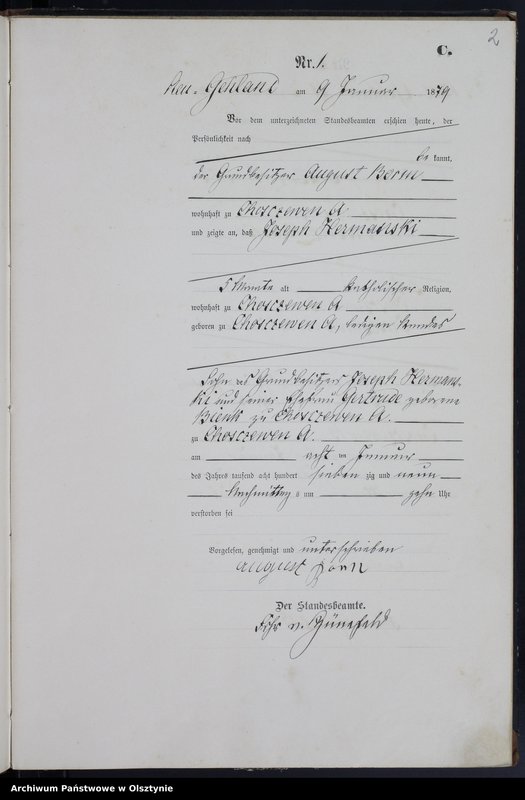 2
C.
Nr. 1.
Neu-Gehland am 9 Januar 1879
Vor dem unterzeichneten Standesbeamten erschien heute, der
Persönlichkeit nach
be kannt,
der Grundbesitzer August
wohnhaft zu Choszczewen A.
und zeigte an, daß Joseph Hermanski
5 Monate alt Katholischer Religion,
wohnhaft zu Choszczewen A
geboren zu Choszczewen A, ledigen Standes
Sohn des Grundbesitzers Joseph Hermans-
ki und seiner Ehefrau Gertrude geborene
Bienk zu Choszczewen A.
zu Choszczewen A.
am acht ten Januar
des Jahres tausend acht hundert sieben zig und neun
Nachmittag s um zehn Uhr
verstorben sei
Vorgelesen, genehmigt und unterschrieben
August
Der Standesbeamte.
v.
Archiwum Państwowe w Olsztynie